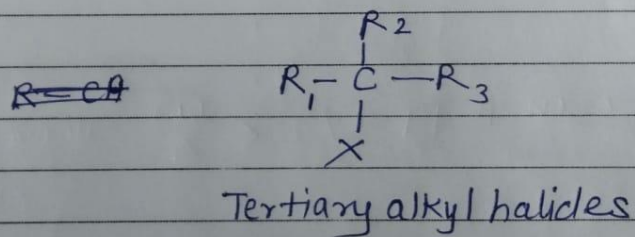 R2
R1-C-R3
X
Tertiary alkyl halides